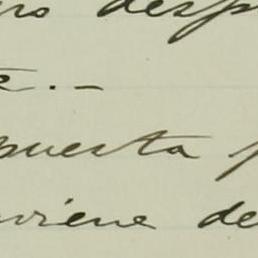 no desp
e.—
puesta p
viene de